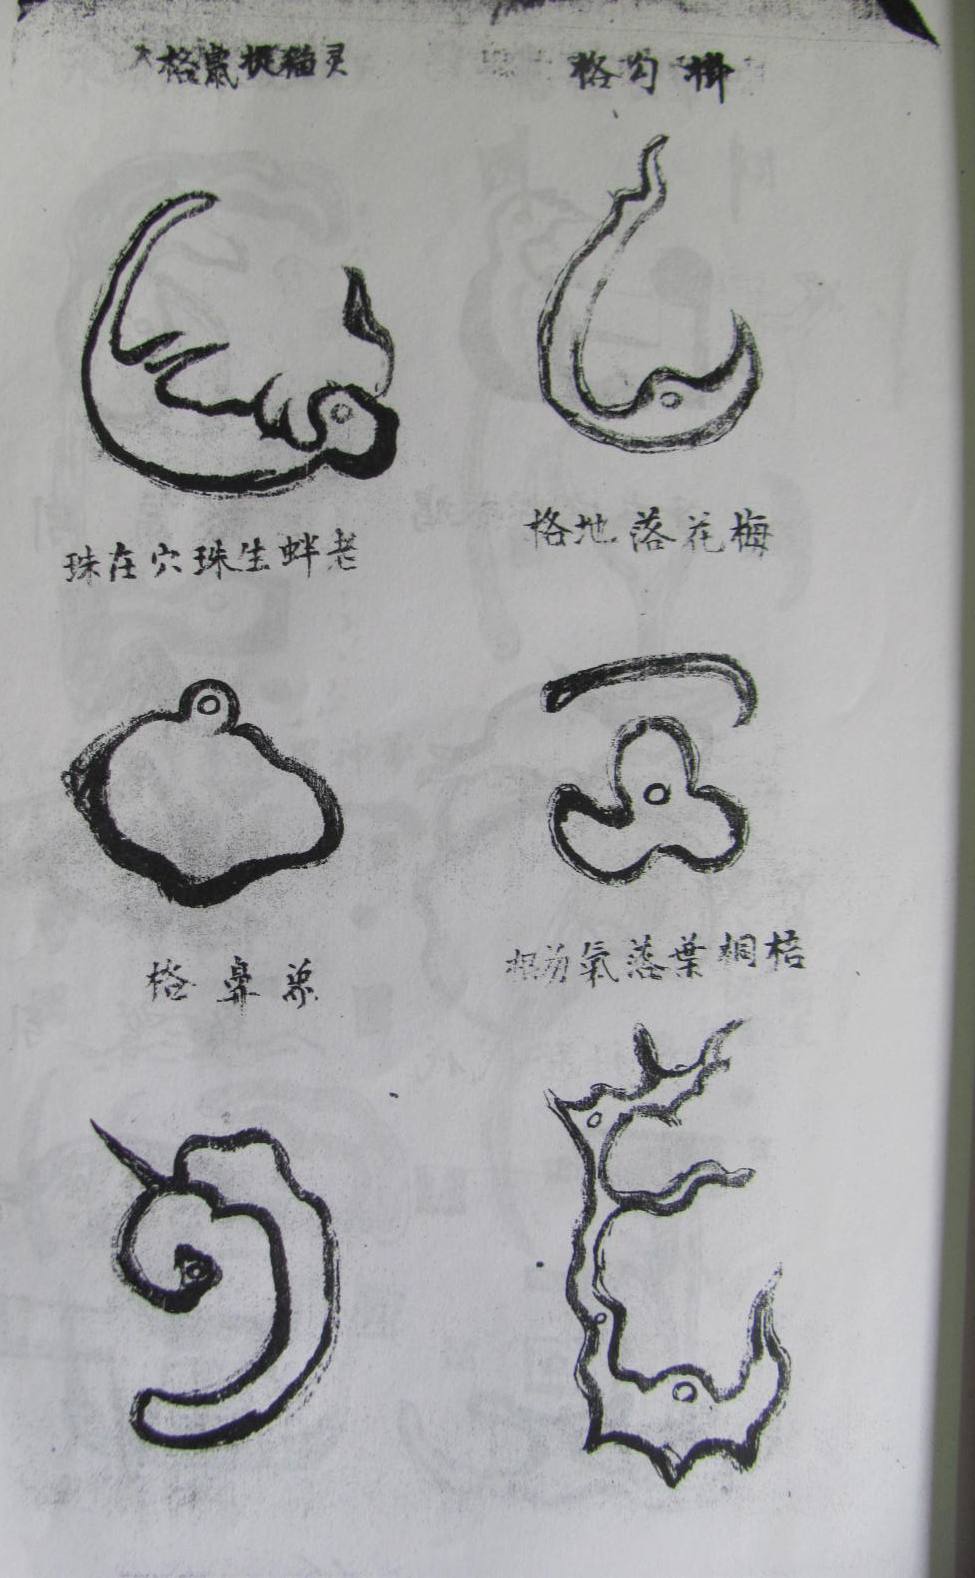 掛勾格
灵猫捉鼠格
梅花落地格
老蚌生珠穴在珠
梧桐葉落氣
象鼻格